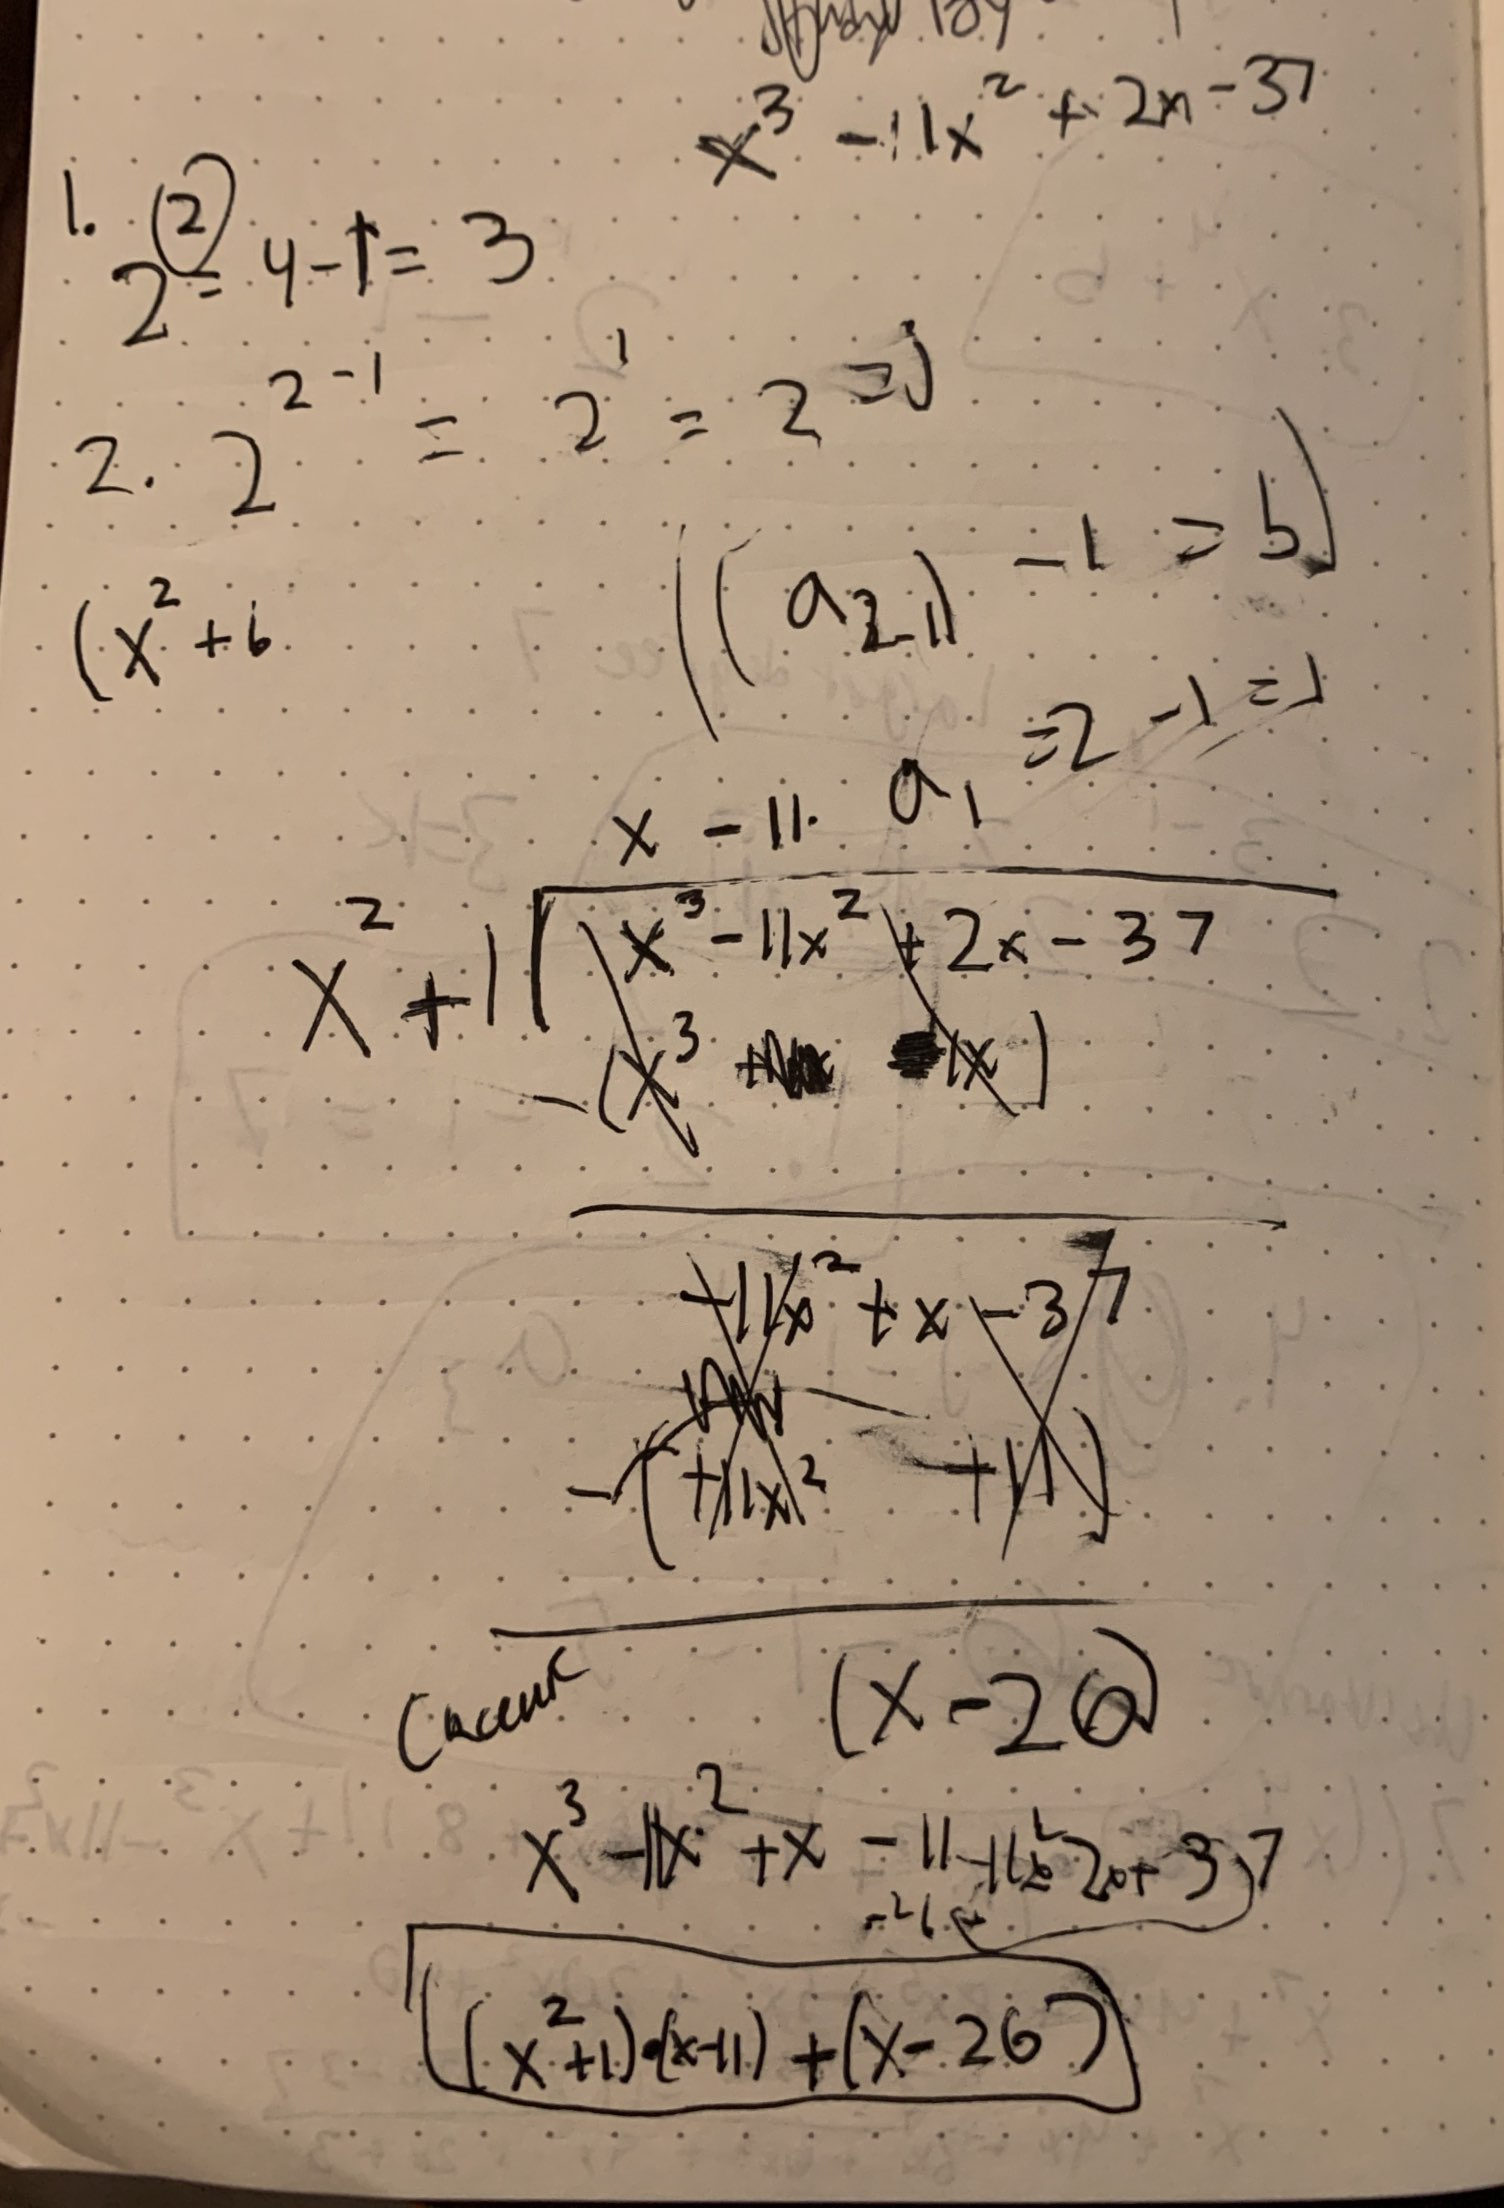 x³ - 11x² + 2x - 37
1. 2² = 4 - 1 = 3
2. 2²⁻¹ = 2¹ = 2
((a₂₋₁) - 1 = b)
(x² + 6
a₁ = 2 - 1 = 1
x - 11
x² + 1 x³ - 11x² + 2x - 37
-(x³ 1x)
-11x² + x - 37
-(+11x² +11)
(x - 26)
x³ - 11x² + x - 11
-26
(x²+1)·(x-11) + (x - 26)